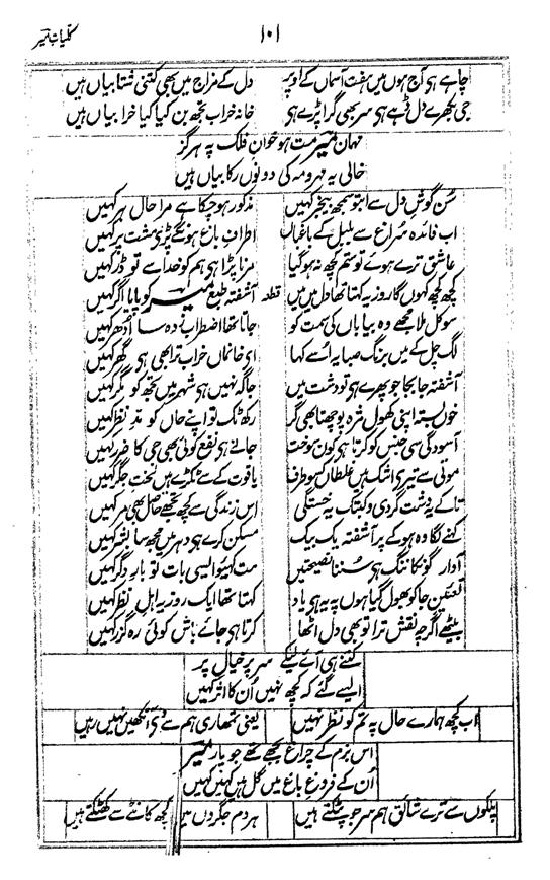 کلیات میر
۱۰۱
چاہے ہی آج ہوں میں ہفت آسماں کے اوپر دل کے مزاج میں بھی کتنی شتابیاں ہیں
جی بکھرے دل ڈہے ہی سر بھی گرا پڑے ہی خانہ خراب تجھ بن کیا کیا خرابیاں ہیں
مہمان میر مت ہو خوان فلک پہ ہرگز
خالی یہ مہر و مہ کی دونوں رکابیاں ہیں
سن گوش دل سے اب تو سمجھ بیخبر کہیں مذکور ہو چکا ہے مرا حال ہر کہیں
اب فائدہ سراغ سے بلبل کے باغباں اطراف باغ ہونگے پڑی مشت پر کہیں
عاشق ترے ہوئے تو ستم کچھ نہ ہو گیا مرنا پڑا ہی ہم کو خدا سے تو ڈر کہیں
کچھ کچھ کہوں گا روز یہ کہتا تھا دل میں میں قطعہ آشفتہ طبع میر کو پایا اگر کہیں
سو کل ملا مجھے وہ بیاباں کی سمت کو جاتا تھا اضطراب زدہ سا اُدھر کہیں
لگ چل کے میں برنگ صبا یہ اُسے کہا ای خانماں خراب ترا بھی ہی گھر کہیں
آشفتہ جابجا جو پھرے ہی تو دشت میں جاگہ نہیں ہی شہر میں تجھ کو مگر کہیں
خوں بستہ اپنی کھول مژہ پوچھتا بھی گر رکھ ٹک تو اپنے حال کو مدنظر کہیں
آسودگی سی جنس کو کرتا ہی کون سوخت جانے ہی نفع کوئی بھی جی کا ضرر کہیں
موتی سے تیری اشک ہیں غلطاں کسو طرف یاقوت کے سے ٹکڑے ہیں لخت جگر کہیں
تاکے یہ دشت گردی و کب تک یہ خستگی اس زندگی سے کچھ تجھے حاصل بھی مر کہیں
کہنے لگا وہ ہو کے پر آشفتہ یک بیک مسکن کرے ہی دہر میں مجھ سا بشر کہیں
آوارگوں کا ننگ ہی سننا نصیحتیں مت کہیو ایسی بات تو بار دگر کہیں
تعئین جا کو بھول گیا ہوں پہ یہ ہی یاد کہتا تھا ایک روز یہ اہل نظر کہیں
بیٹھے اگرچہ نقش ترا تو بھی دل اٹھا کرتا ہی جائے باش کوئی رہ گزر کہیں
کتنے ہی آئے لیکے سر پر خیال پر
ایسے گئے کہ کچھ نہیں اُن کا اثر کہیں
اب کچھ ہمارے حال پہ تم کو نظر نہیں یعنی تمھاری ہم سے وے آنکھیں نہیں رہیں
اس بزم کے چراغ بجھے تھے جو یار میر
اُن کے فروغ باغ میں گل ہیں کہیں کہیں
پلکوں سے ترے شائق ہم سر جو پٹکتے ہیں ہر دم جگروں میں کچھ کانٹے سے کھٹکتے ہیں